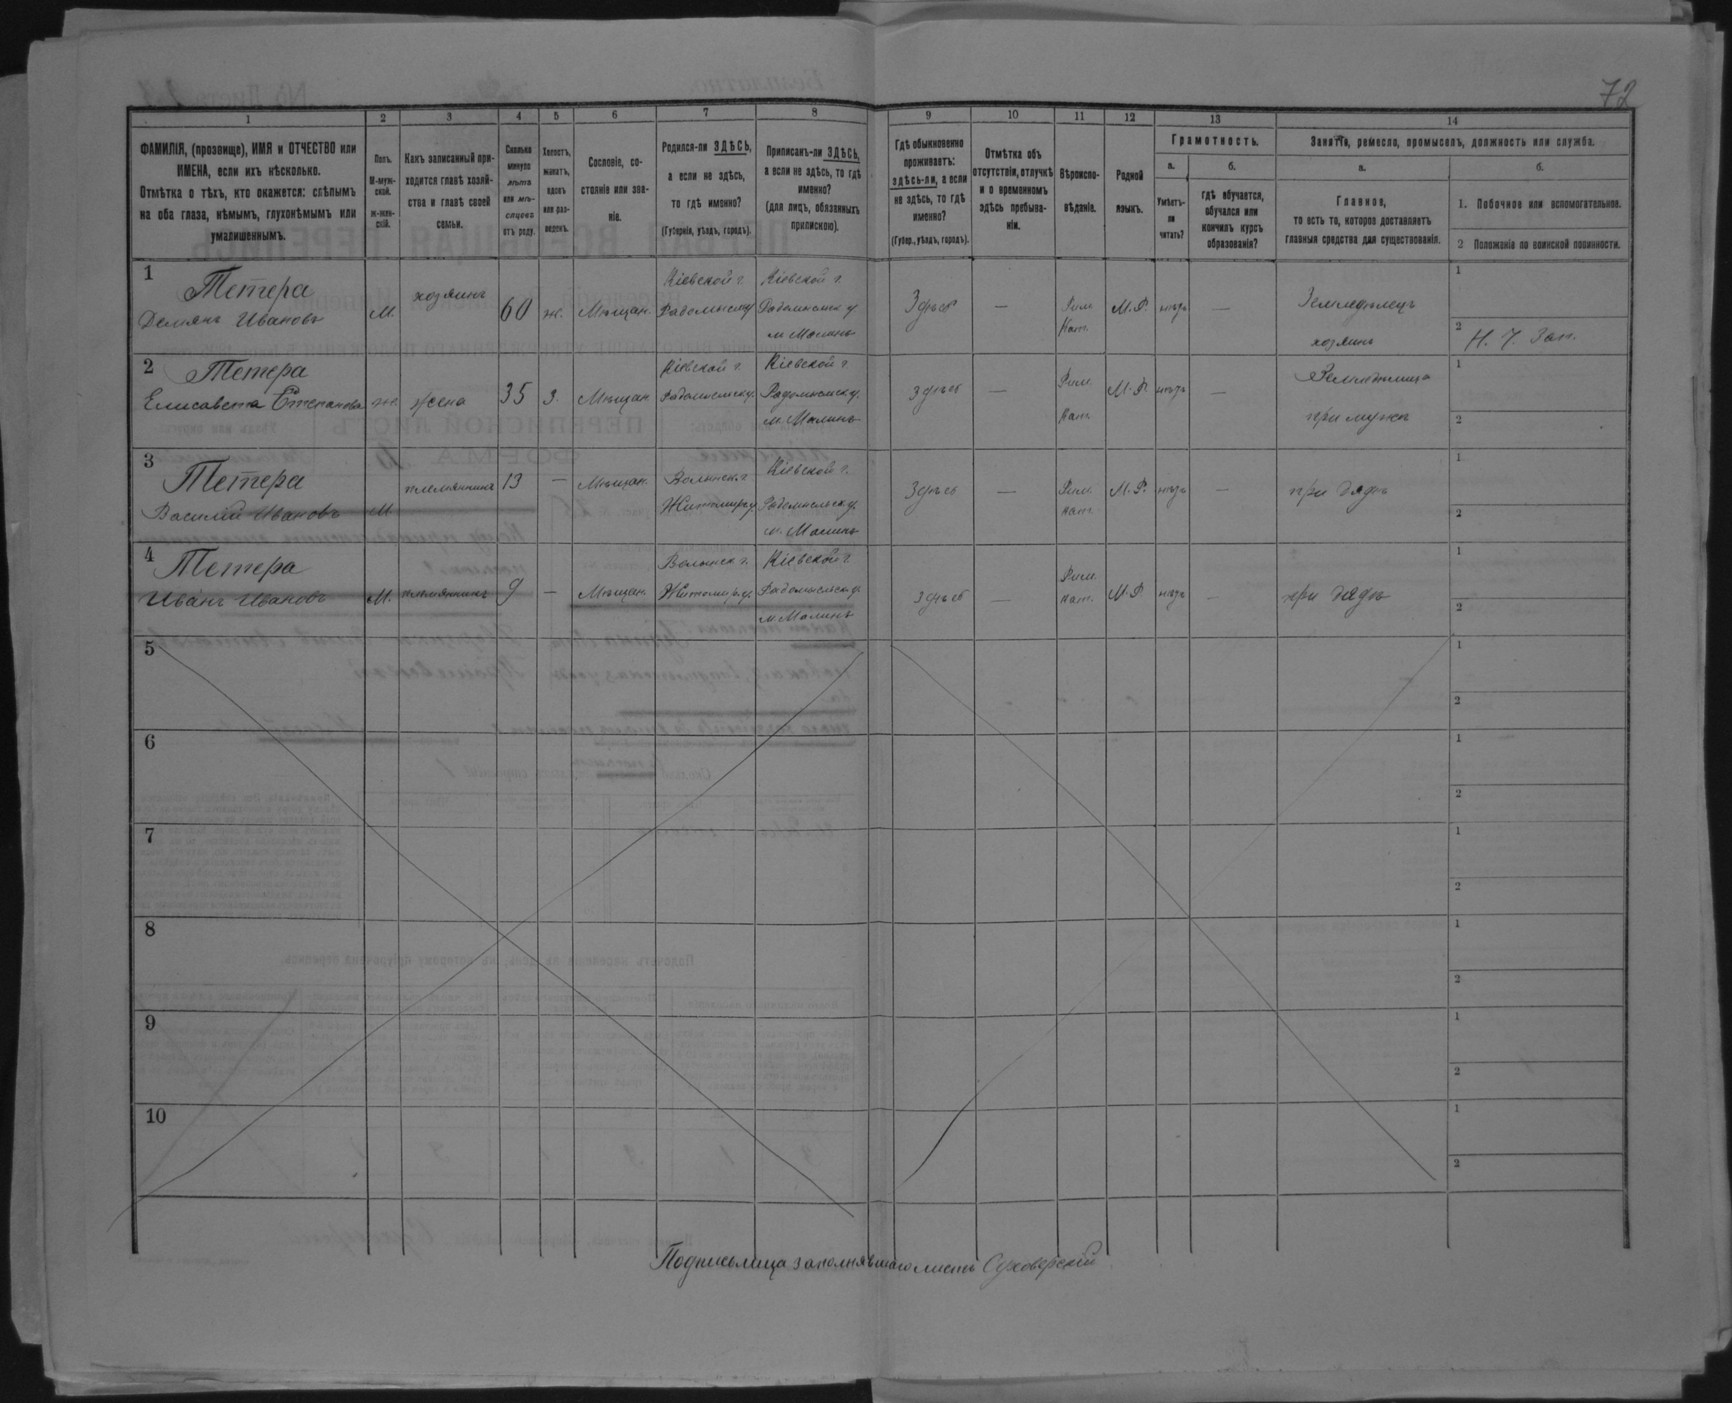 72
1 2 3 4 5 6 7 8 9 10 11 12 13 14
ФАМИЛІЯ, (прозвище), ИМЯ и ОТЧЕСТВО или
ИМЕНА, если ихъ нѣсколько.
Отмѣтка о тѣхъ, кто окажется: слѣпымъ
на оба глаза, нѣмымъ, глухонѣмымъ или
умалишеннымъ.
Полъ.
М-муж-
ской.
ж-жен-
скій.
Какъ записанный при-
ходится главѣ хозяй-
ства и главѣ своей
семьи.
Сколько
минуло
лѣтъ
или мѣ-
сяцевъ
отъ роду.
Холостъ,
женатъ,
вдовъ
или раз-
веденъ.
Сословіе, со-
стояніе или зва-
ніе.
Родился-ли ЗДѢСЬ,
а если не здѣсь,
то гдѣ именно?
(Губернія, уѣздъ, городъ).
Приписанъ-ли ЗДѢСЬ,
а если не здѣсь, то гдѣ
именно?
(для лицъ, обязанныхъ
припиской).
Гдѣ обыкновенно
проживаетъ:
здѣсь-ли, а если
не здѣсь, то гдѣ
именно?
(Губер., уѣздъ, городъ).
Отмѣтка объ
отсутствіи, отлучкѣ
и о временномъ
здѣсь пребыва-
ніи.
Вѣроиспо-
вѣданіе.
Родной
языкъ.
Грамотность.
а.
Умѣетъ-
ли
читать?
б.
гдѣ обучается,
обучался или
кончилъ курсъ
образованія?
Занятіе, ремесло, промыселъ, должность или служба.
а.
Главное,
то есть то, которое доставляетъ
главныя средства для существованія.
б.
1. Побочное или вспомогательное.
2 Положеніе по воинской повинности.
1
Тетера
Демянъ Ивановъ
М.
хозяинъ
60
ж.
Мѣщан.
Кіевской г.
Радомыслу
Кіевской г.
Радомыслск у
м Малинъ
Здѣсь
—
Рим.
Кат.
М.Р.
нѣтъ
—
Земледѣлецъ
хозяинъ
1
2
Н. Ч. Зап.
2
Тетера
Елисавета Степанова
ж.
жена
35
З.
Мѣщан
Кіевской г
Радомыслску.
Кіевской г.
Радомыслск у.
м. Малинъ
здѣсь
—
Рим.
Кат
М.Р.
нѣтъ
—
при мужѣ
1
2
3
Тетера
Василій Ивановъ
М
племянникъ
13
—
Мѣщан.
Волынск.г
Житомир у
Кіевской г.
Радомыслск у.
м. Малинъ
Здѣсь
—
Рим.
Кат
М.Р.
нѣтъ
—
при дядѣ
1
2
4
Тетера
Иванъ Ивановъ
М.
племянникъ
9
—
Мѣщан.
Волынск г.
Житомир.у.
Кіевской г
Радомыслск у.
м. Малинъ
здѣсь
—
Рим.
Кат.
М.Р
нѣтъ
—
при дядѣ
1
2
5
1
2
6
1
2
7
1
2
8
1
2
9
1
2
10
1
2
Подпись лица заполнявшаго листъ Суховерскій